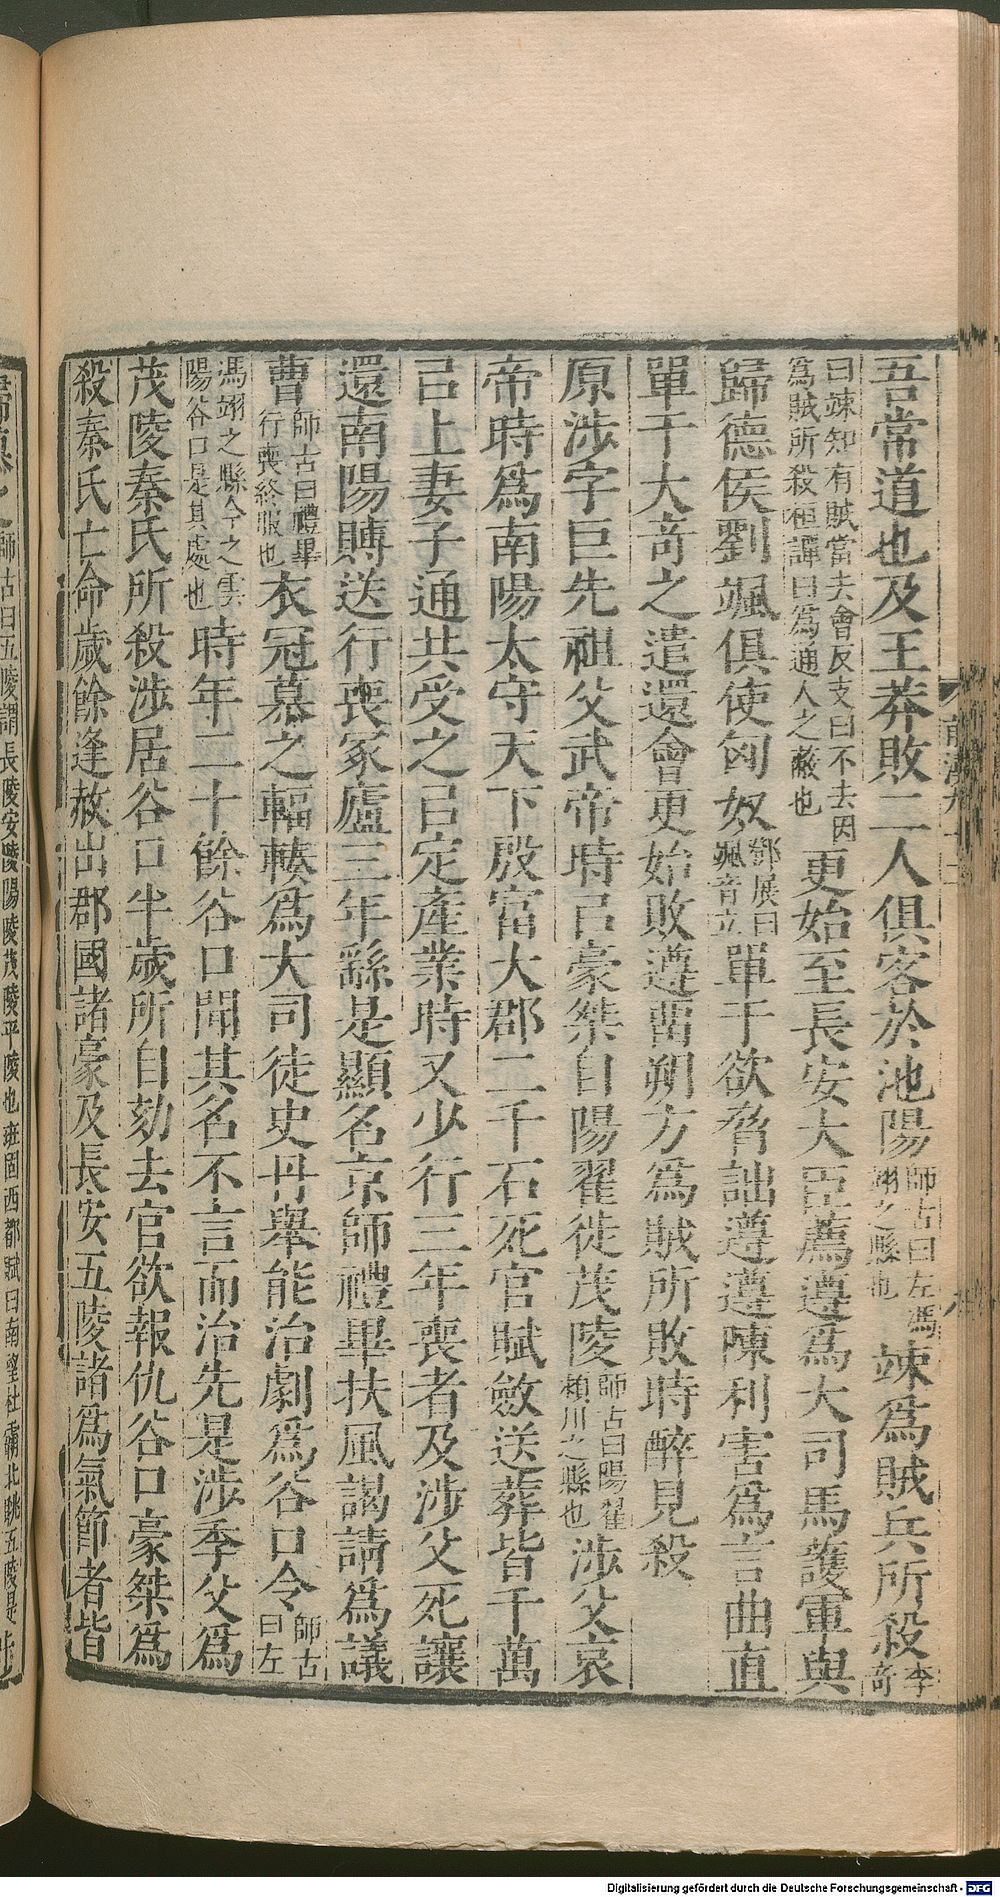 吾常道也及王莽敗二人俱客於池陽師古曰左馮翊之縣也竦爲賊兵所殺李奇
曰竦知有賊當去會反支日不去因爲賊所殺桓譚曰爲通人之蔽也更始至長安大臣薦遵爲大司馬護軍與
歸德侯劉颯俱使匈奴鄧展曰颯音立單于欲脅詘遵遵陳利害爲言曲直
單于大奇之遣還會更始敗遵畱朔方爲賊所敗時醉見殺
原涉字巨先祖父武帝時㠯豪桀自陽翟徙茂陵師古曰陽翟潁川之縣也涉父哀
帝時爲南陽太守天下殷富大郡二千石死官賦斂送葬皆千萬
㠯上妻子通共受之㠯定產業時又少行三年喪者及涉父死讓
還南陽賻送行喪冢廬三年繇是顯名京師禮畢扶風謁請爲議
曹師古曰禮畢行喪終服也衣冠慕之輻輳爲大司徒史丹舉能治劇爲谷口令師古曰左
馮翊之縣今之雲陽谷口是其處也時年二十餘谷口聞其名不言而治先是涉季父爲
茂陵秦氏所殺涉居谷口半歲所自劾去官欲報仇谷口豪桀爲
殺秦氏亡命歲餘逢赦出郡國諸豪及長安五陵諸爲氣節者皆
師古曰五陵謂長陵安陵陽陵茂陵平陵也班固西都賦曰南望杜霸北眺五陵是
Digitalisierung gefördert durch die Deutsche Forschungsgemeinschaft - DFG